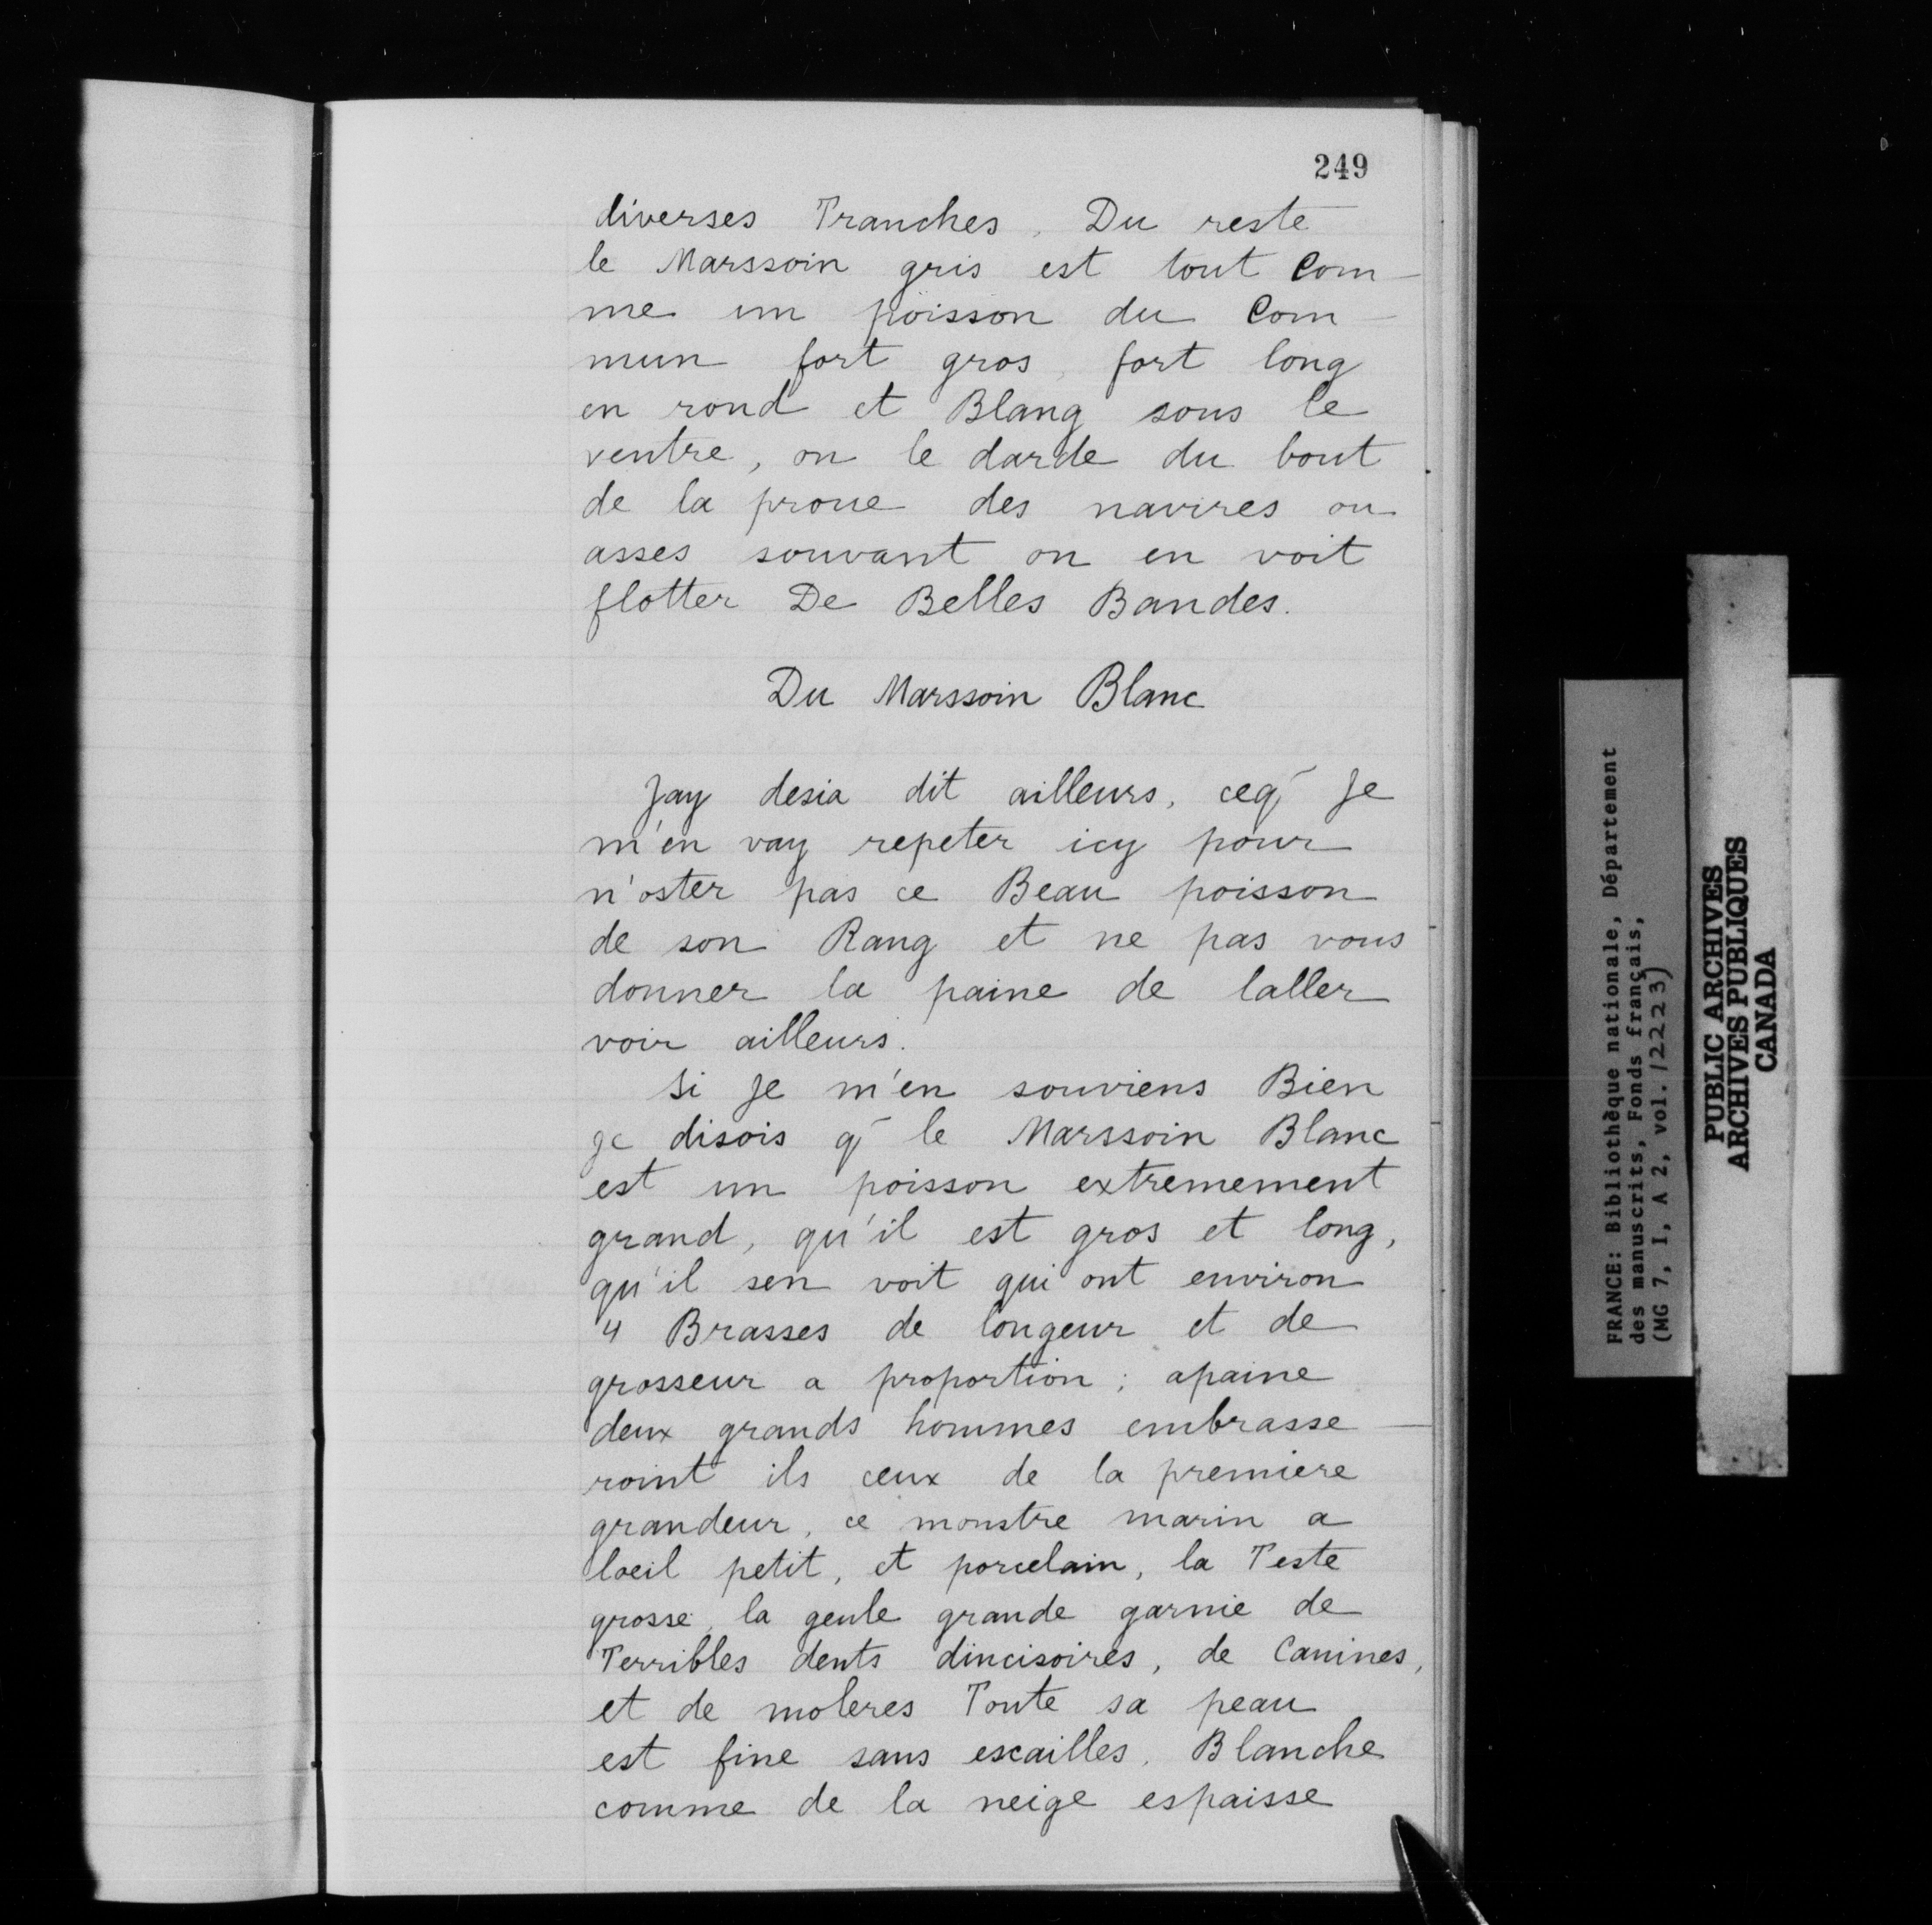 249
diverses Tranches, Du reste
le Marssoin gris est tout Com-
me un poisson du Com-
mun fort gros, fort long
en rond et Blang sous le
ventre, on le darde du bout
de la proue des navires ou
asses souvant on en voit
flotter De Belles Bandes.
Du Marssoin Blanc
Jay desia dit ailleurs, ceq̃ Je
m'en vay repeter icy pour
n'oster pas ce Beau poisson
de son Rang et ne pas vous
donner la paine de laller
voir ailleurs.
Si Je m'en souviens Bien
je disois q̃ le Marssoin Blanc
est un poisson extremement
grand, qu'il est gros et long,
qu'il sen voit qui ont environ
4 Brasses de longeur et de
grosseur a proportion; apaine
deux grands hommes embrasse-
roint ils ceux de la premiere
grandeur, ce monstre marin a
loeil petit, et porcelain, la Teste
grosse, la geule grande garnie de
Terribles dents dincisoires, de Canines,
et de moleres Toute sa peau
est fine sans escailles, Blanche
comme de la neige espaisse
FRANCE: Bibliothèque nationale, Département
des manuscrits, Fonds français,
(MG 7, I, A 2, vol. 12223)
PUBLIC ARCHIVES
ARCHIVES PUBLIQUES
CANADA